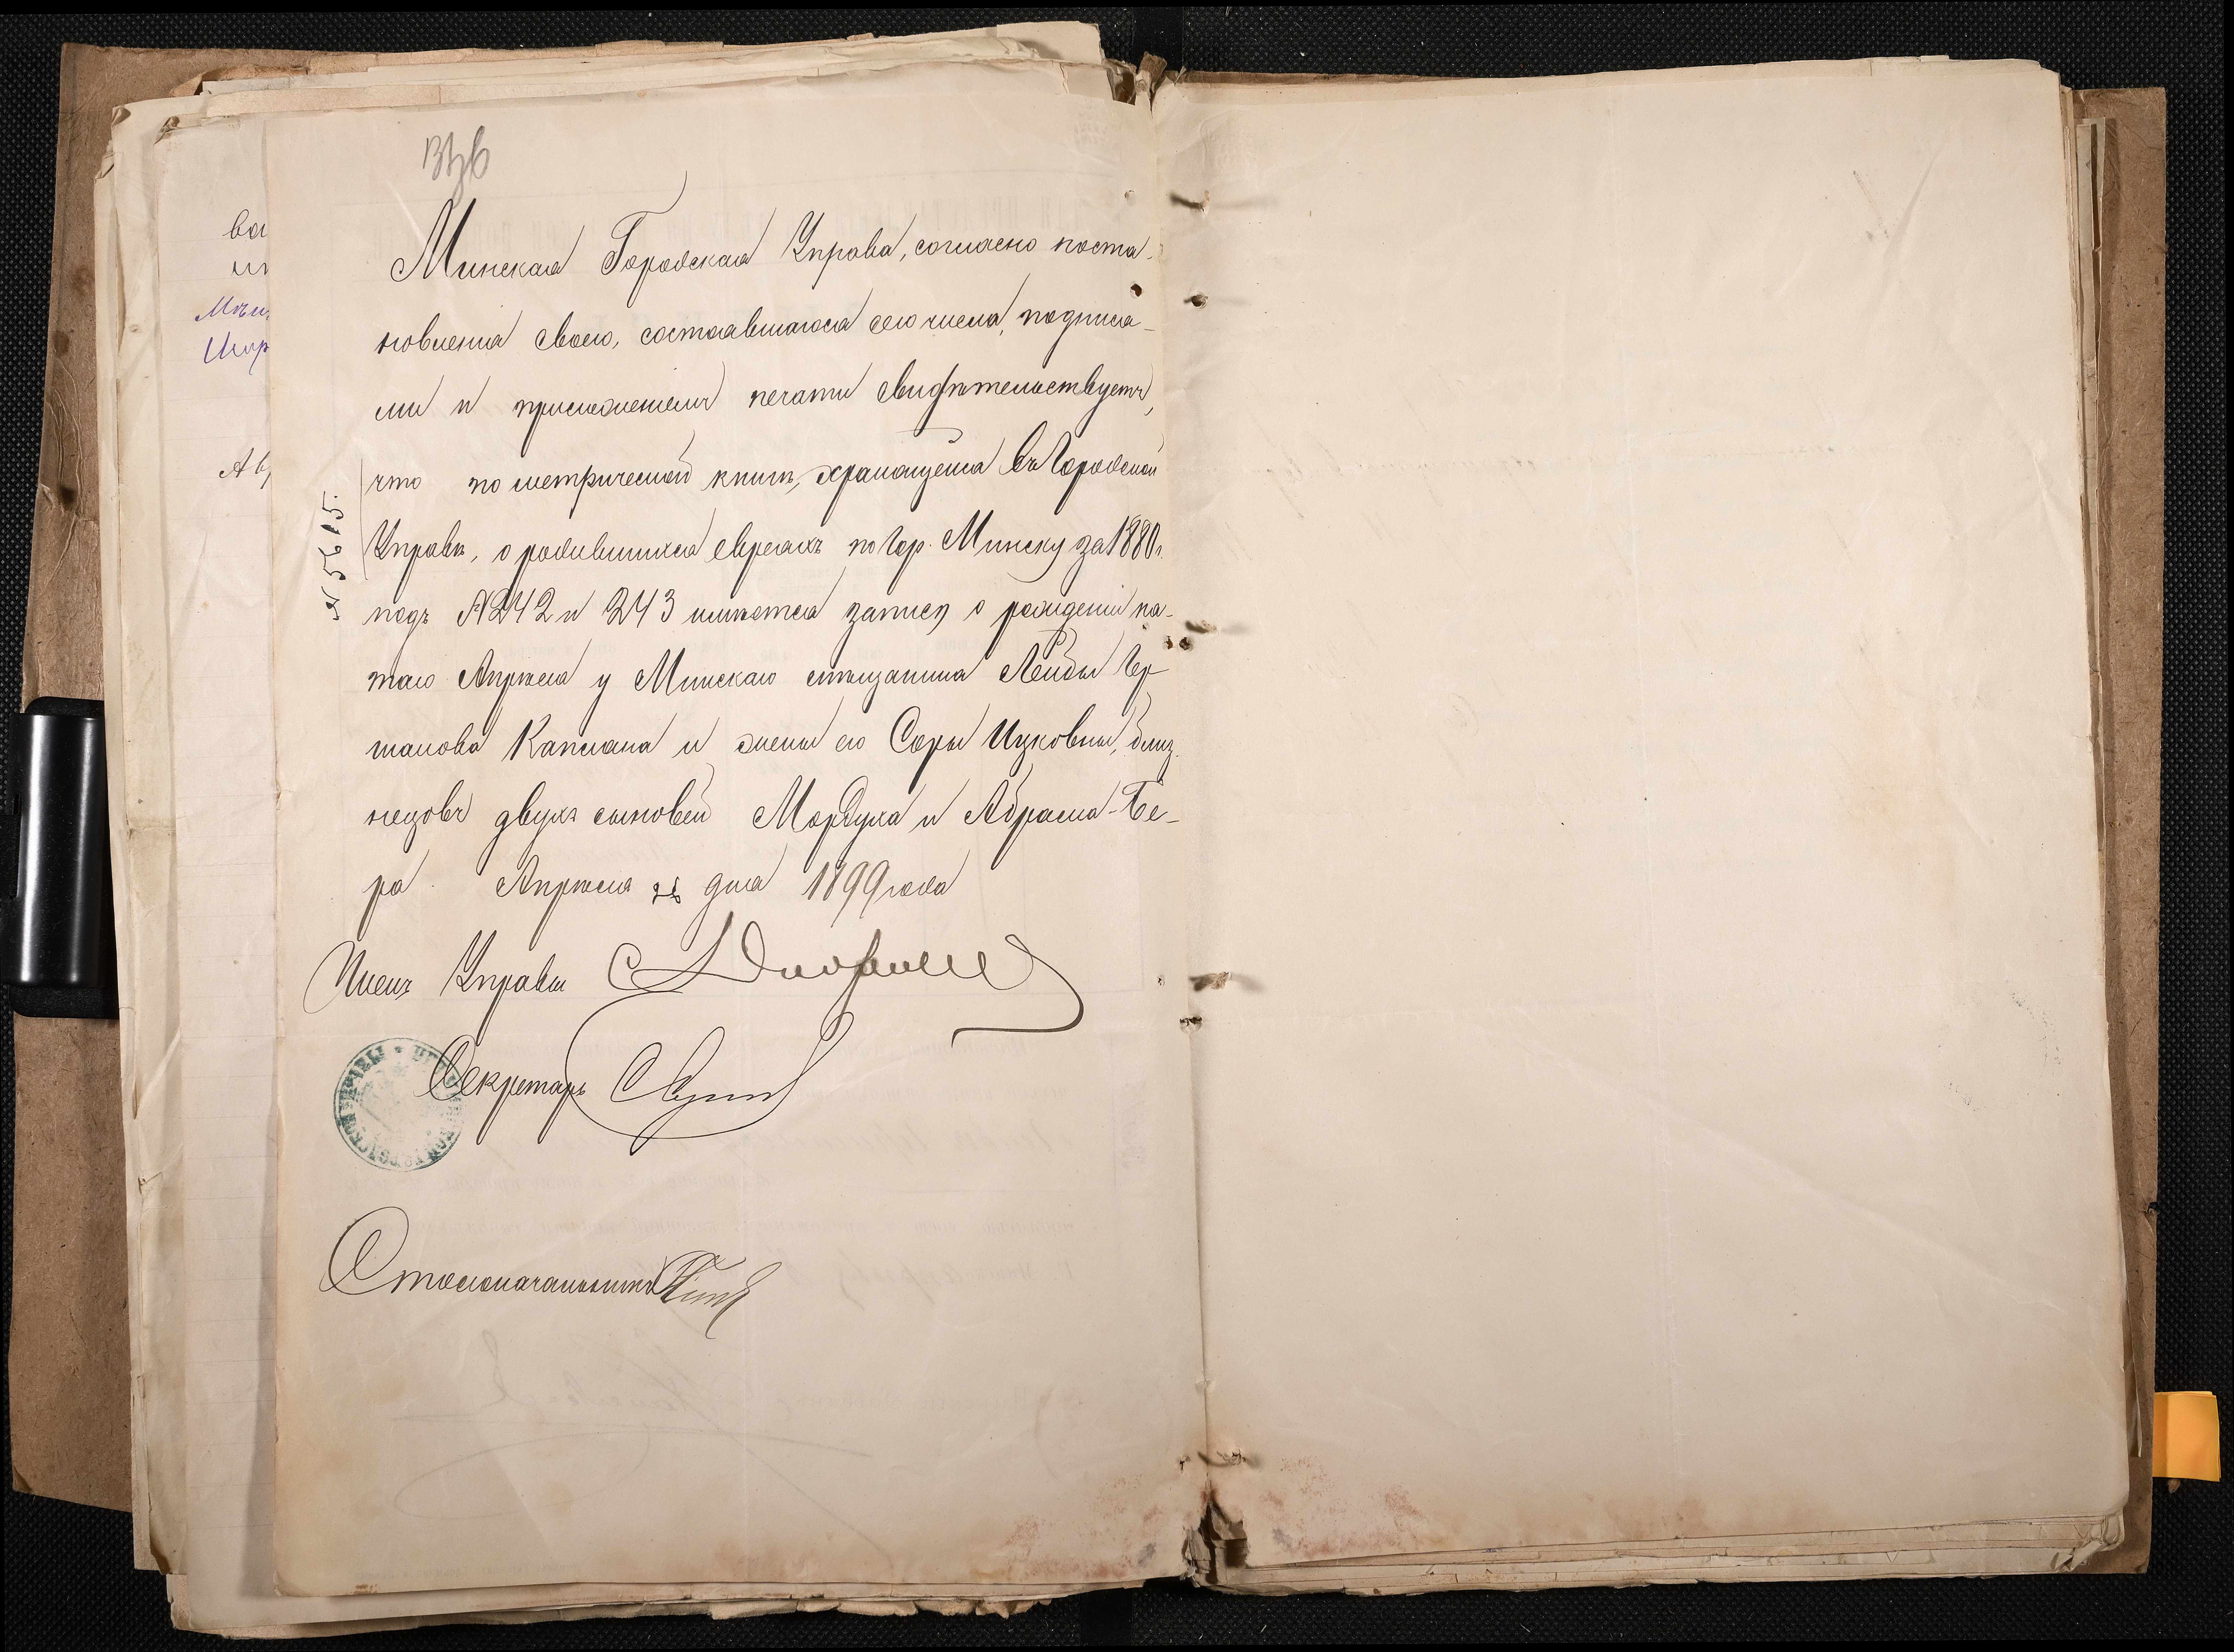 Минская Городская Управа, согласно поста-
новленія своего, состоявшагося сего числа, подписа-
ми и приложеніемъ печати свидѣтельствуетъ,
что по метрической книгѣ, хранящейся въ Городской
Управѣ, о родившихся евреяхъ по гор. Минску за 1880 г.
подъ № 242 и 243 имѣется запись о рожденіи пя-
таго Апрѣля у Минскаго мѣщанина Лейбы Гер-
шанова Каплана и жены его Соры Ицковны, близ-
нецовъ двухъ сыновей Мордуха и Абрама-Бе-
ра. Апрѣля 28 дня 1899 года
№ 5615.
Членъ Управы
Секретарь
Столоначальникъ
ва
Мѣщ
Авр